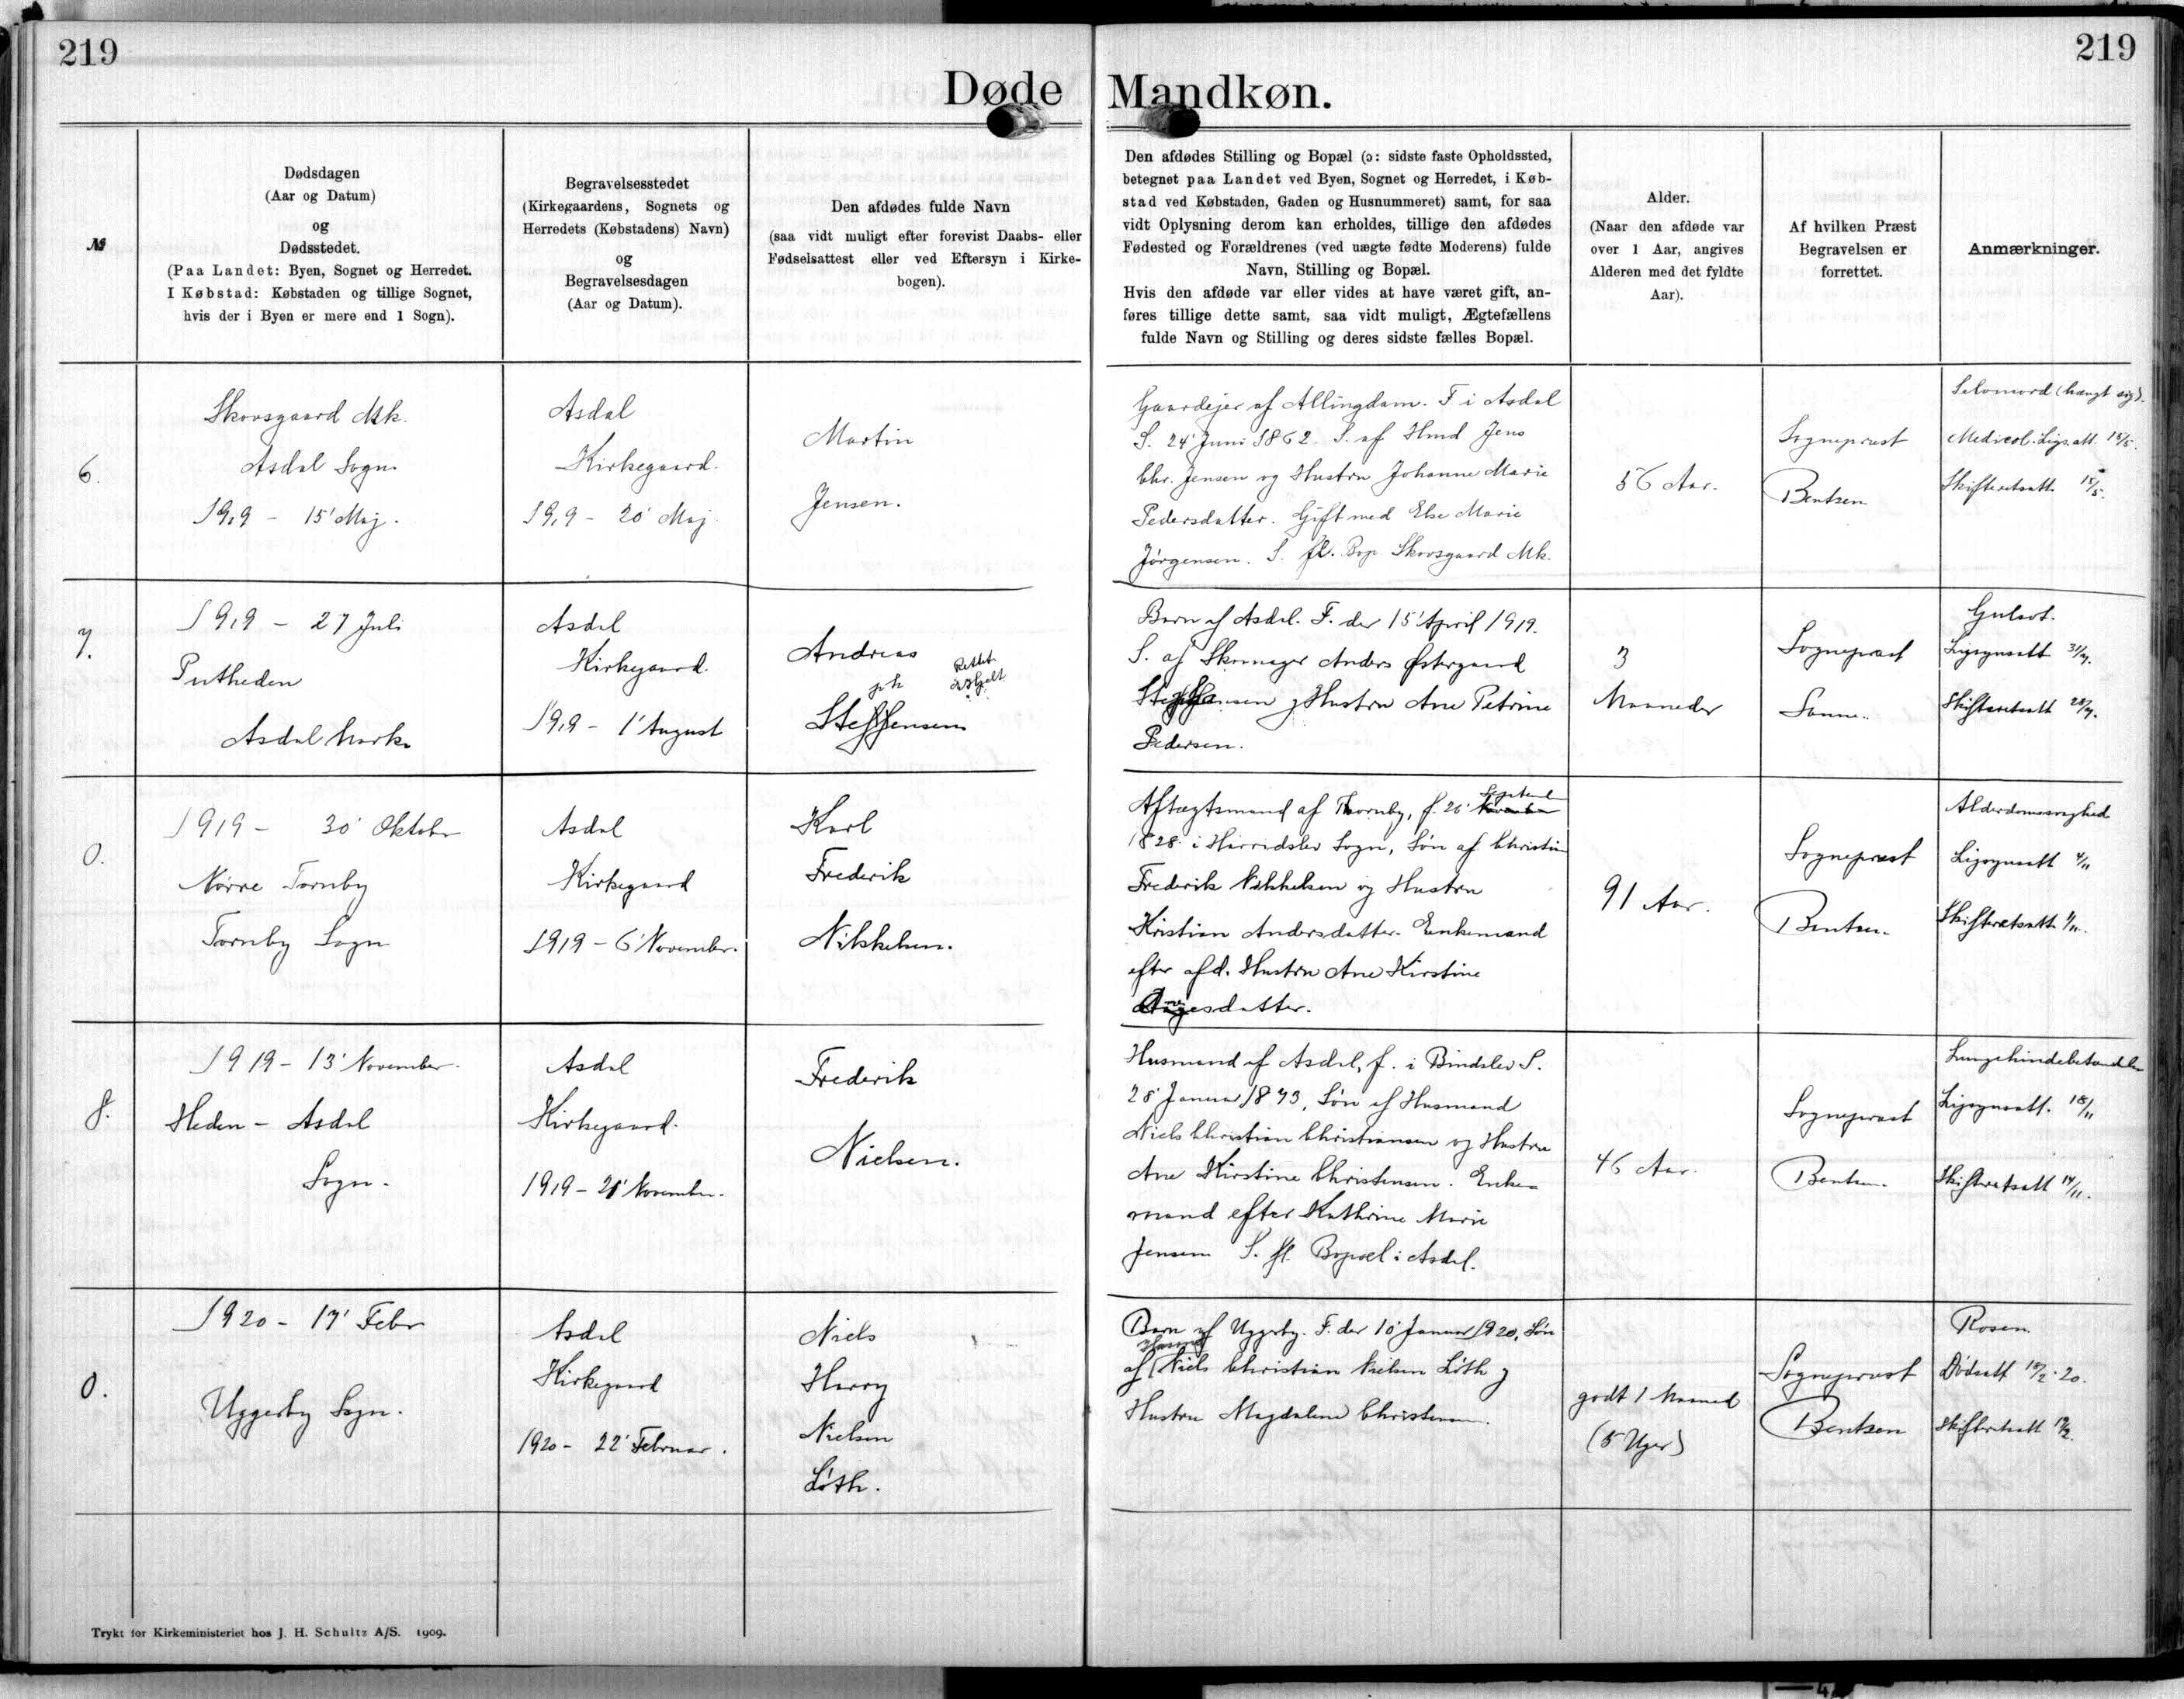 219
219
Døde Mandkøn.
№
Dødsdagen
(Aar og Datum)
og
Dødsstedet.
(Paa Landet: Byen, Sognet og Herredet.
I Købstad: Købstaden og tillige Sognet,
hvis der i Byen er mere end 1 Sogn).
Begravelsesstedet
(Kirkegaardens, Sognets og
Herredets (Købstadens) Navn)
og
Begravelsesdagen
(Aar og Datum).
Den afdødes fulde Navn
(saa vidt muligt efter forevist Daabs- eller
Fødselsattest eller ved Eftersyn i Kirke-
bogen).
Den afdødes Stilling og Bopæl (ɔ: sidste faste Opholdssted,
betegnet paa Landet ved Byen, Sognet og Herredet, i Køb-
stad ved Købstaden, Gaden og Husnummeret) samt, for saa
vidt Oplysning derom kan erholdes, tillige den afdødes
Fødested og Forældrenes (ved uægte fødte Moderens) fulde
Navn, Stilling og Bopæl.
Hvis den afdøde var eller vides at have været gift, an-
føres tillige dette samt, saa vidt muligt, Ægtefællens
fulde Navn og Stilling og deres sidste fælles Bopæl.
Alder.
(Naar den afdøde var
over 1 Aar, angives
Alderen med det fyldte
Aar).
Af hvilken Præst
Begravelsen er
forrettet.
Anmærkninger.
6.
Skovsgaard Mk.
Asdal Sogn.
1919 - 15' Maj.
Asdal
Kirkegaard.
1919 - 20' Maj
Martin
Jensen.
Gaardejer af Allingdam. F. i Asdal
S. 24' Juni 1862. S. af Hmd Jens
Chr. Jensen og Hustru Johanne Marie
Pedersdatter. Gift med Else Marie
Jørgensen. S. fl. Bop. Skovsgaard Mk.
56 Aar.
Sognepræst
Bentsen
Selvmord (hængt sig).
Medicol. Ligs.att. 15/5.
Skifteretsatt. 15/5.
7.
1919 - 27 Juli
Asdal Mark.
Asdal
Kirkegaard.
1919 - 1' August
Andreas
ph
Rettet
Steffensen
Barn af Asdal. F. der 15' April 1919.
S. af Skomager Anders Østergaard
Hustru Ane Petrine
Pedersen.
3
Maaneder
Sognepræst
Gulsot.
Ligsynsatt 31/7.
Skifteretsatt 28/7.
0.
1919 - 30' Oktober
Nørre Tornby
Tornby Sogn
Asdal
Kirkegaard
1919 - 6' November.
Karl
Frederik
Nikkelsen.
Aftægtsmand af Tornby, f. 20' September
1828 i Horredslev Sogn, Søn af Christian
Frederik Nikkelsen og Hustru
Kristian Andersdatter. Enkemand
efter afd. Hustru Ane Kirstine
91 Aar.
Sognepræst
Bentsen.
Alderdomssvaghed
Ligsynsatt 4/11
Skifteretsatt 1/11.
8.
1919 - 13' November.
Heden - Asdal
Sogn.
Asdal
Kirkegaard.
1919 - 21' November.
Frederik
Nielsen.
Husmand af Asdal, f. i Bindslev S.
28' Januar 1873, Søn af Husmand
Niels Christian Christiansen og Hustru
Ane Kirstine Christensen. Enke=
mand efter Kathrine Marie
Jensen S. fl. Bopæl i Asdal.
46 Aar.
Sognepræst
Bentsen.
Lungehindebetændelse
Ligsynsatt. 18/11
Skifteretsatt 14/11.
0.
1920 - 17' Febr
Uggerby Sogn.
Asdal
Kirkegaard
1920 - 22' Februar.
Niels
Harry
Nielsen
Løth.
Barn af Uggerby. F. der 10' Januar 1920, Søn
af Niels Christian Nielsen Løth og
Hustru Magdalene Christensen.
godt 1 Maaned
(5 Uger)
Sognepræst
Bentsen
Rosen
Dødsatt 18/2 20.
Skifteretsatt
Trykt for Kirkeministeriet hos J. H. Schultz A/S. 1909.